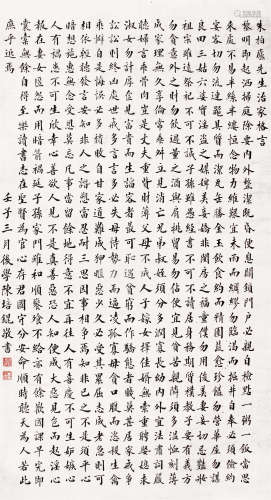 朱柏廬先生治家格言
黎明即起洒掃庭除要內外整潔既昏便息關鎖門戶必親自檢點一粥一飯當思
來處不易半絲半縷恆念物力維艱宜未雨而綢繆勿臨渴而掘井自奉必須儉約
宴客切勿流連器具質而潔瓦缶勝金玉飲食約而精園蔬愈珍饈勿營華屋勿謀
良田三姑六婆實淫盜之媒婢美妾嬌非閨房之福童僕勿用俊美妻妾切忌艷妝
祖宗雖遠祭祀不可不誠子孫雖愚經書不可不讀居身務期質樸教子要有義方
勿貪意外之財勿飲過量之酒與肩挑貿易勿佔便宜見貧苦親鄰須多溫恤刻薄
成家理無久享倫常乖舛立見消亡兄弟叔姪須分多潤寡長幼內外宜法肅辭嚴
聽婦言乖骨肉豈是丈夫重貲財薄父母不成人子嫁女擇佳婿無索重聘娶媳求
淑女勿計厚奩見富貴而生諂容者最可恥遇貧窮而作驕態者賤莫甚居家戒爭
訟訟則終凶處世戒多言言多必失毋恃勢力而凌逼孤寡毋貪口腹而恣殺生禽
乖僻自是悔誤必多頹惰自甘家道難成狎暱惡少久必受其累屈志老成急則可
相依輕聽發言安知非人之譖愬當忍耐三思因事相爭焉知非己之不是須平心
暗想施惠無念受恩莫忘凡事當留餘地得意不宜再往人有喜慶不可生妒嫉心
人有禍患不可生喜幸心善欲人見不是真善惡恐人知便是大惡見色而起淫心
報在妻女匿怨而用暗箭禍延子孫家門雖和順饔飧不給亦有餘歡國課早完即
囊橐無餘自得至樂讀書志在聖賢為官心存君國守分安命順時聽天為人若此
庶乎近焉
壬子三月後學陳培錕敬書